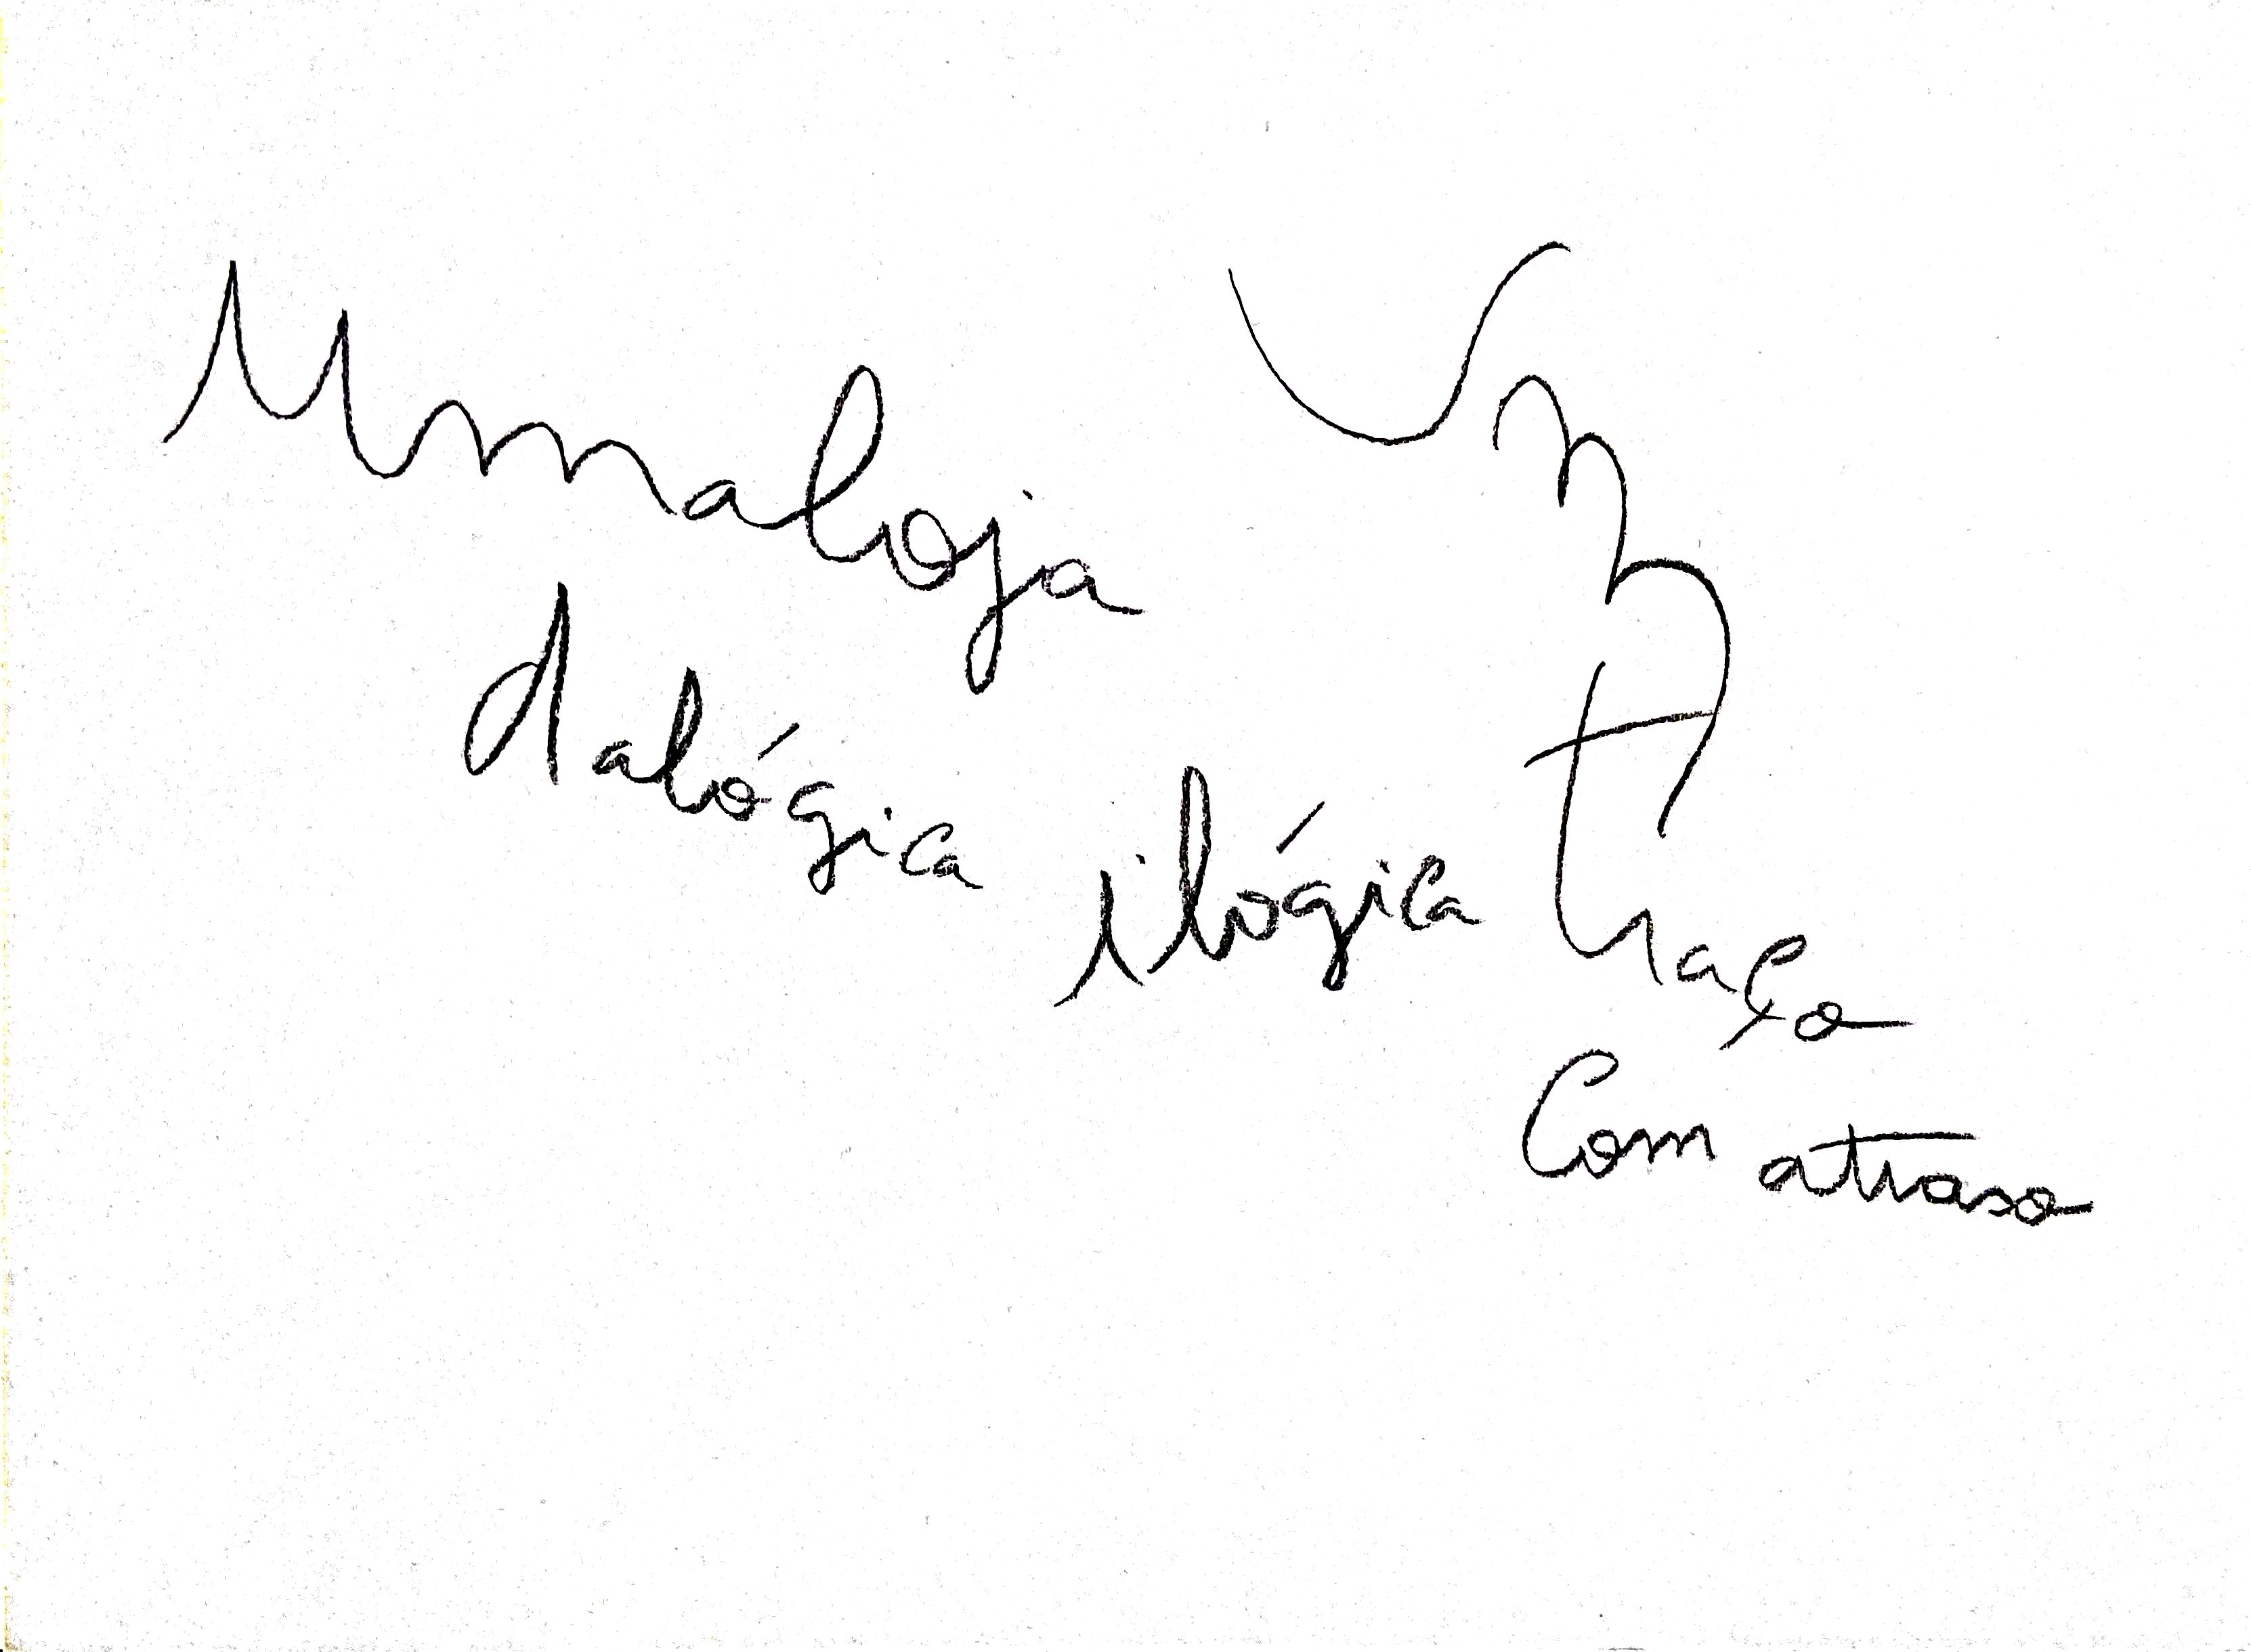 Umaloja
dalógica ilógica
Um
traço
Com atraso